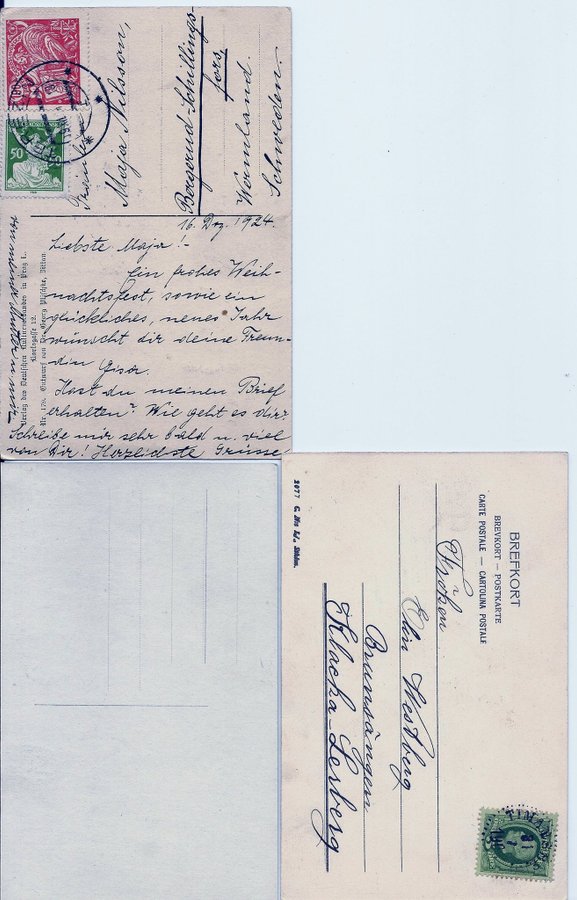 Fräulein
Maja Nilsson,
Borgerud-Schillings-
fors,
Wermland
Schweden.
16. Dez. 1924.
Liebste Maja!-
Ein frohes Weih-
nachtsfest, sowie ein
glückliches, neues Jahr
wünscht dir deine Freun-
din
Hast du meinen Brief
erhalten? Wie geht es dir?
Schreibe mir sehr bald u. viel
von Dir! Herzlichste Grüsse
von meinen
Verlag des Deutschen Kulturverbandes in Prag I.
12.
Nr. 170. Entwurf von Dr. Georg
50
BREFKORT
BREVKORT — POSTKARTE
CARTE POSTALE — CARTOLINA POSTALE
Fröken
Elin Westberg
Brunsängen
Klacka-Lerberg
2077